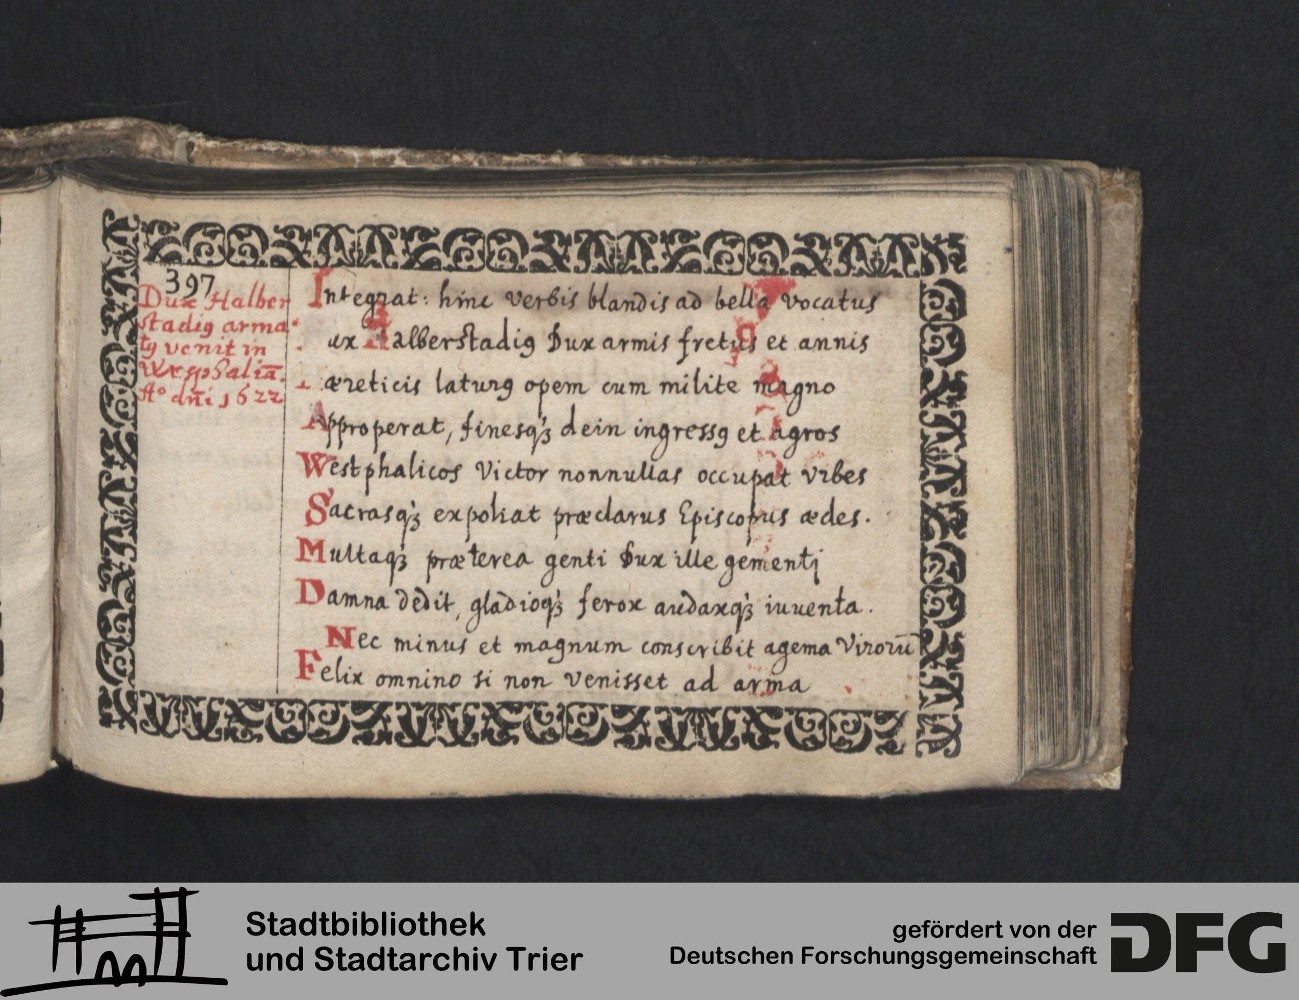 397
Dux Halber
stadiꝰ arma
tꝰ venit in
Westphaliā.
Aº dn̄i 1622
Integrat: hinc verbis blandis ad bella vocatus
ux Halberstadiꝰ Dux armis fretus et annis
æreticis laturꝰ opem cum milite magno
Approperat, finesqꝫ dein ingressꝰ et agros
Westphalicos Victor nonnullas occupat vrbes
Sacrasqꝫ expoliat præclarus Episcopus ædes.
Multaqꝫ præterea genti Dux ille gementi
Damna dedit, gladioqꝫ ferox audaxqꝫ iuuenta.
Nec minus et magnum conscribit agema Virorū
Felix omnino si non venisset ad arma
Stadtbibliothek
und Stadtarchiv Trier
gefördert von der
Deutschen Forschungsgemeinschaft
DFG